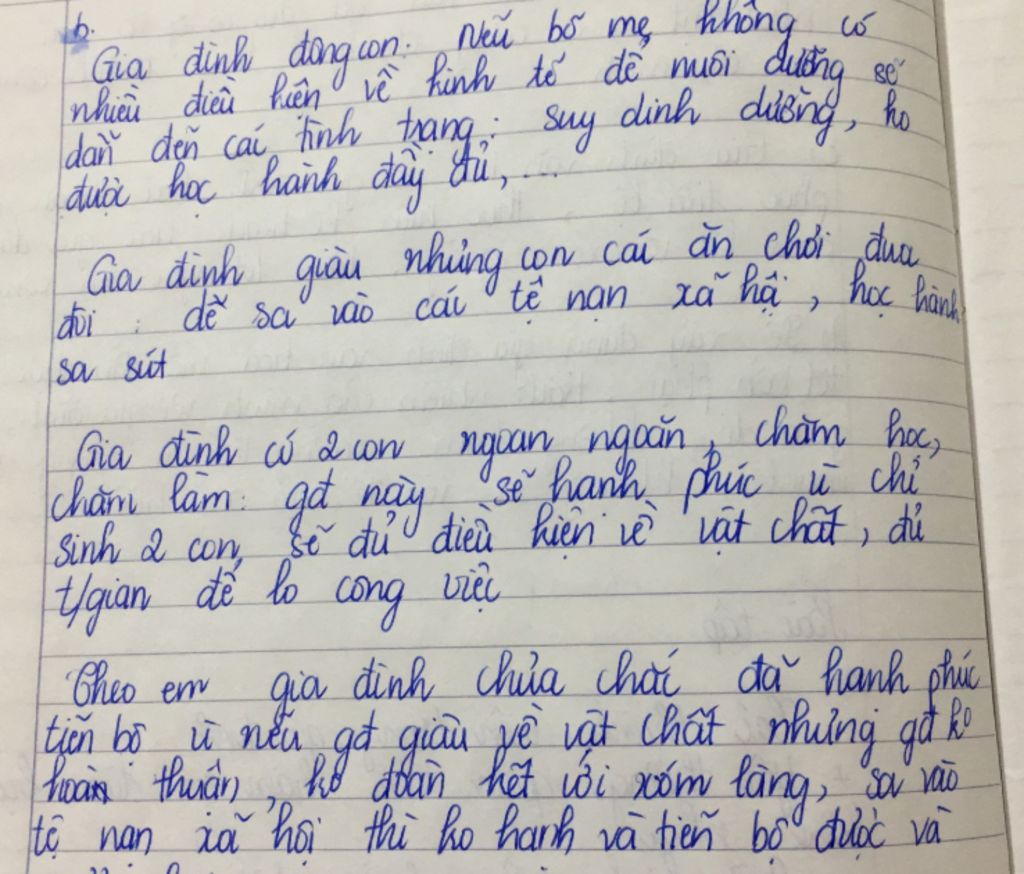 b.
Gia đình đông con: Nếu bố mẹ không có
nhiều điều kiện về kinh tế để nuôi dưỡng sẽ
dẫn đến cái tình trạng: suy dinh dưỡng, ko
được học hành đầy đủ,...
Gia đình giàu nhưng con cái ăn chơi đua
đòi: dễ sa vào các tệ nạn xã hội, học hành
sa sút
Gia đình có 2 con ngoan ngoãn, chăm học,
chăm làm: gđ này sẽ hạnh phúc vì chỉ
sinh 2 con, sẽ đủ điều kiện về vật chất, đủ
t/gian để lo công việc
Theo em gia đình chưa chắc đã hạnh phúc
tiến bộ vì nếu gđ giàu về vật chất nhưng gđ ko
hoàn thuận, ko đoàn kết với xóm làng, sa vào
tệ nạn xã hội thì ko hạnh và tiến bộ được và